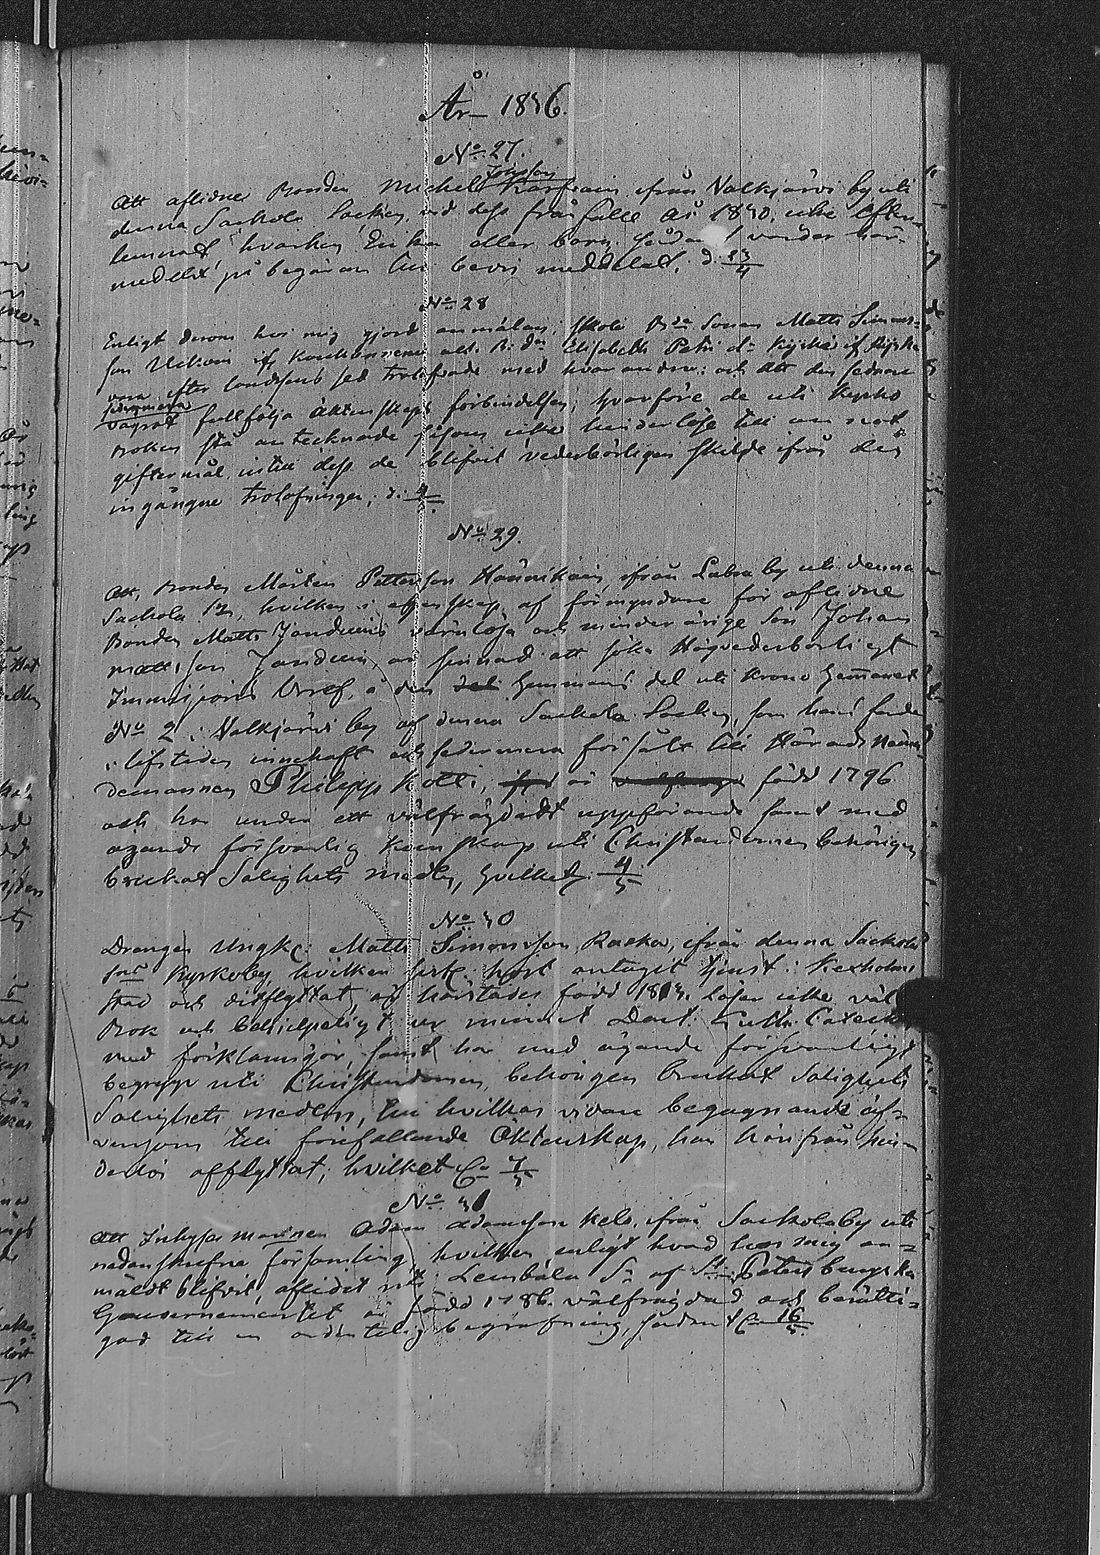 År 1836.
No 27.
Johansson
Att aflidne Bonden Michel Karhiain, ifrån Valkjärvi by uti
denna Sackola Socken, vid dess frånfälle år 1830, icke efter
lemnat, hvarken Enka eller barn, sådant varder här-
medelst på begäran till bevis meddelat, d. 23/4
No 28
Enligt derom hos mig gjord anmälan, skola Bde Sonen Matts Simons-
son Ukkoin if och B. dr Elisabeth Petri dr
vara efter landssens sed trolofvade med hvarandra; och att den sednare
sedermera
vägrat fullfölja äktenskaps förbindelsen, hvarföre de uti Kyrko
Boken stå antecknade såsom icke hinderlöse till annat
giftermål, intill dess de blifvit vederbörligen skilde ifrån den
ingångne trolofningen; d. 4/5
No 29.
Att, Bonden Mårten Pettersson Hännikäin, ifrån Labra by uti denna
Sackola Sn, hvilken i egenskap af förmyndare för aflidne
Bonden Matts Janduins värnlösa och minderårige Son Johan
Mattsson Janduin, är sinnad att söka Högvederbörligt
Immissions Bref, å den det Hemmans del uti Krono Hemmanet
No 2 i Valkjärvi by af denna Sackola Socken, som hans fader
i lifstiden innehaft och sedermera försålt till Härads Näm-
demannen Philipp Kotti, är född 1796
och har under ett välfrägdadt uppförande samt med
ägande försvarlig kunskap uti Christendomen behörigen
brukat Salighets medlen, hvilket 4/5
No 30
Drängen Ungk: Matts Simonsson Raska, ifrån denna Sackola
Sns Kyrkoby hvilken sistl. höst antagit tjenst i Kexholms
stad och ditflyttat, är härstädes född 1813. Läser icke väl
Bok och behjelpeligt ur minnet Doct. Luth. Cateches
med förklaringar, samt har med ägande försvarligt
begrepp uti Christendomen, behörigen brukat Salighets
Salighets medlen, till hvilkas vidare begagnande äf-
vensom till förefallande Äktenskap, han härifrån hin-
derlös afflyttat; hvilket 7/5
No 31
Att Inhyses mannen Adam Adamsson Kelo, ifrån Sackola by uti
nedanskrefne församling, hvilken enligt hvad hos mig an-
mäldt blifvit, aflidit uti Lembala Sn af St Petersburgska
Gouvernementet är född 1786. välfrägdad och berätti-
gad till en ordentelig begrafning, sådant 16/5